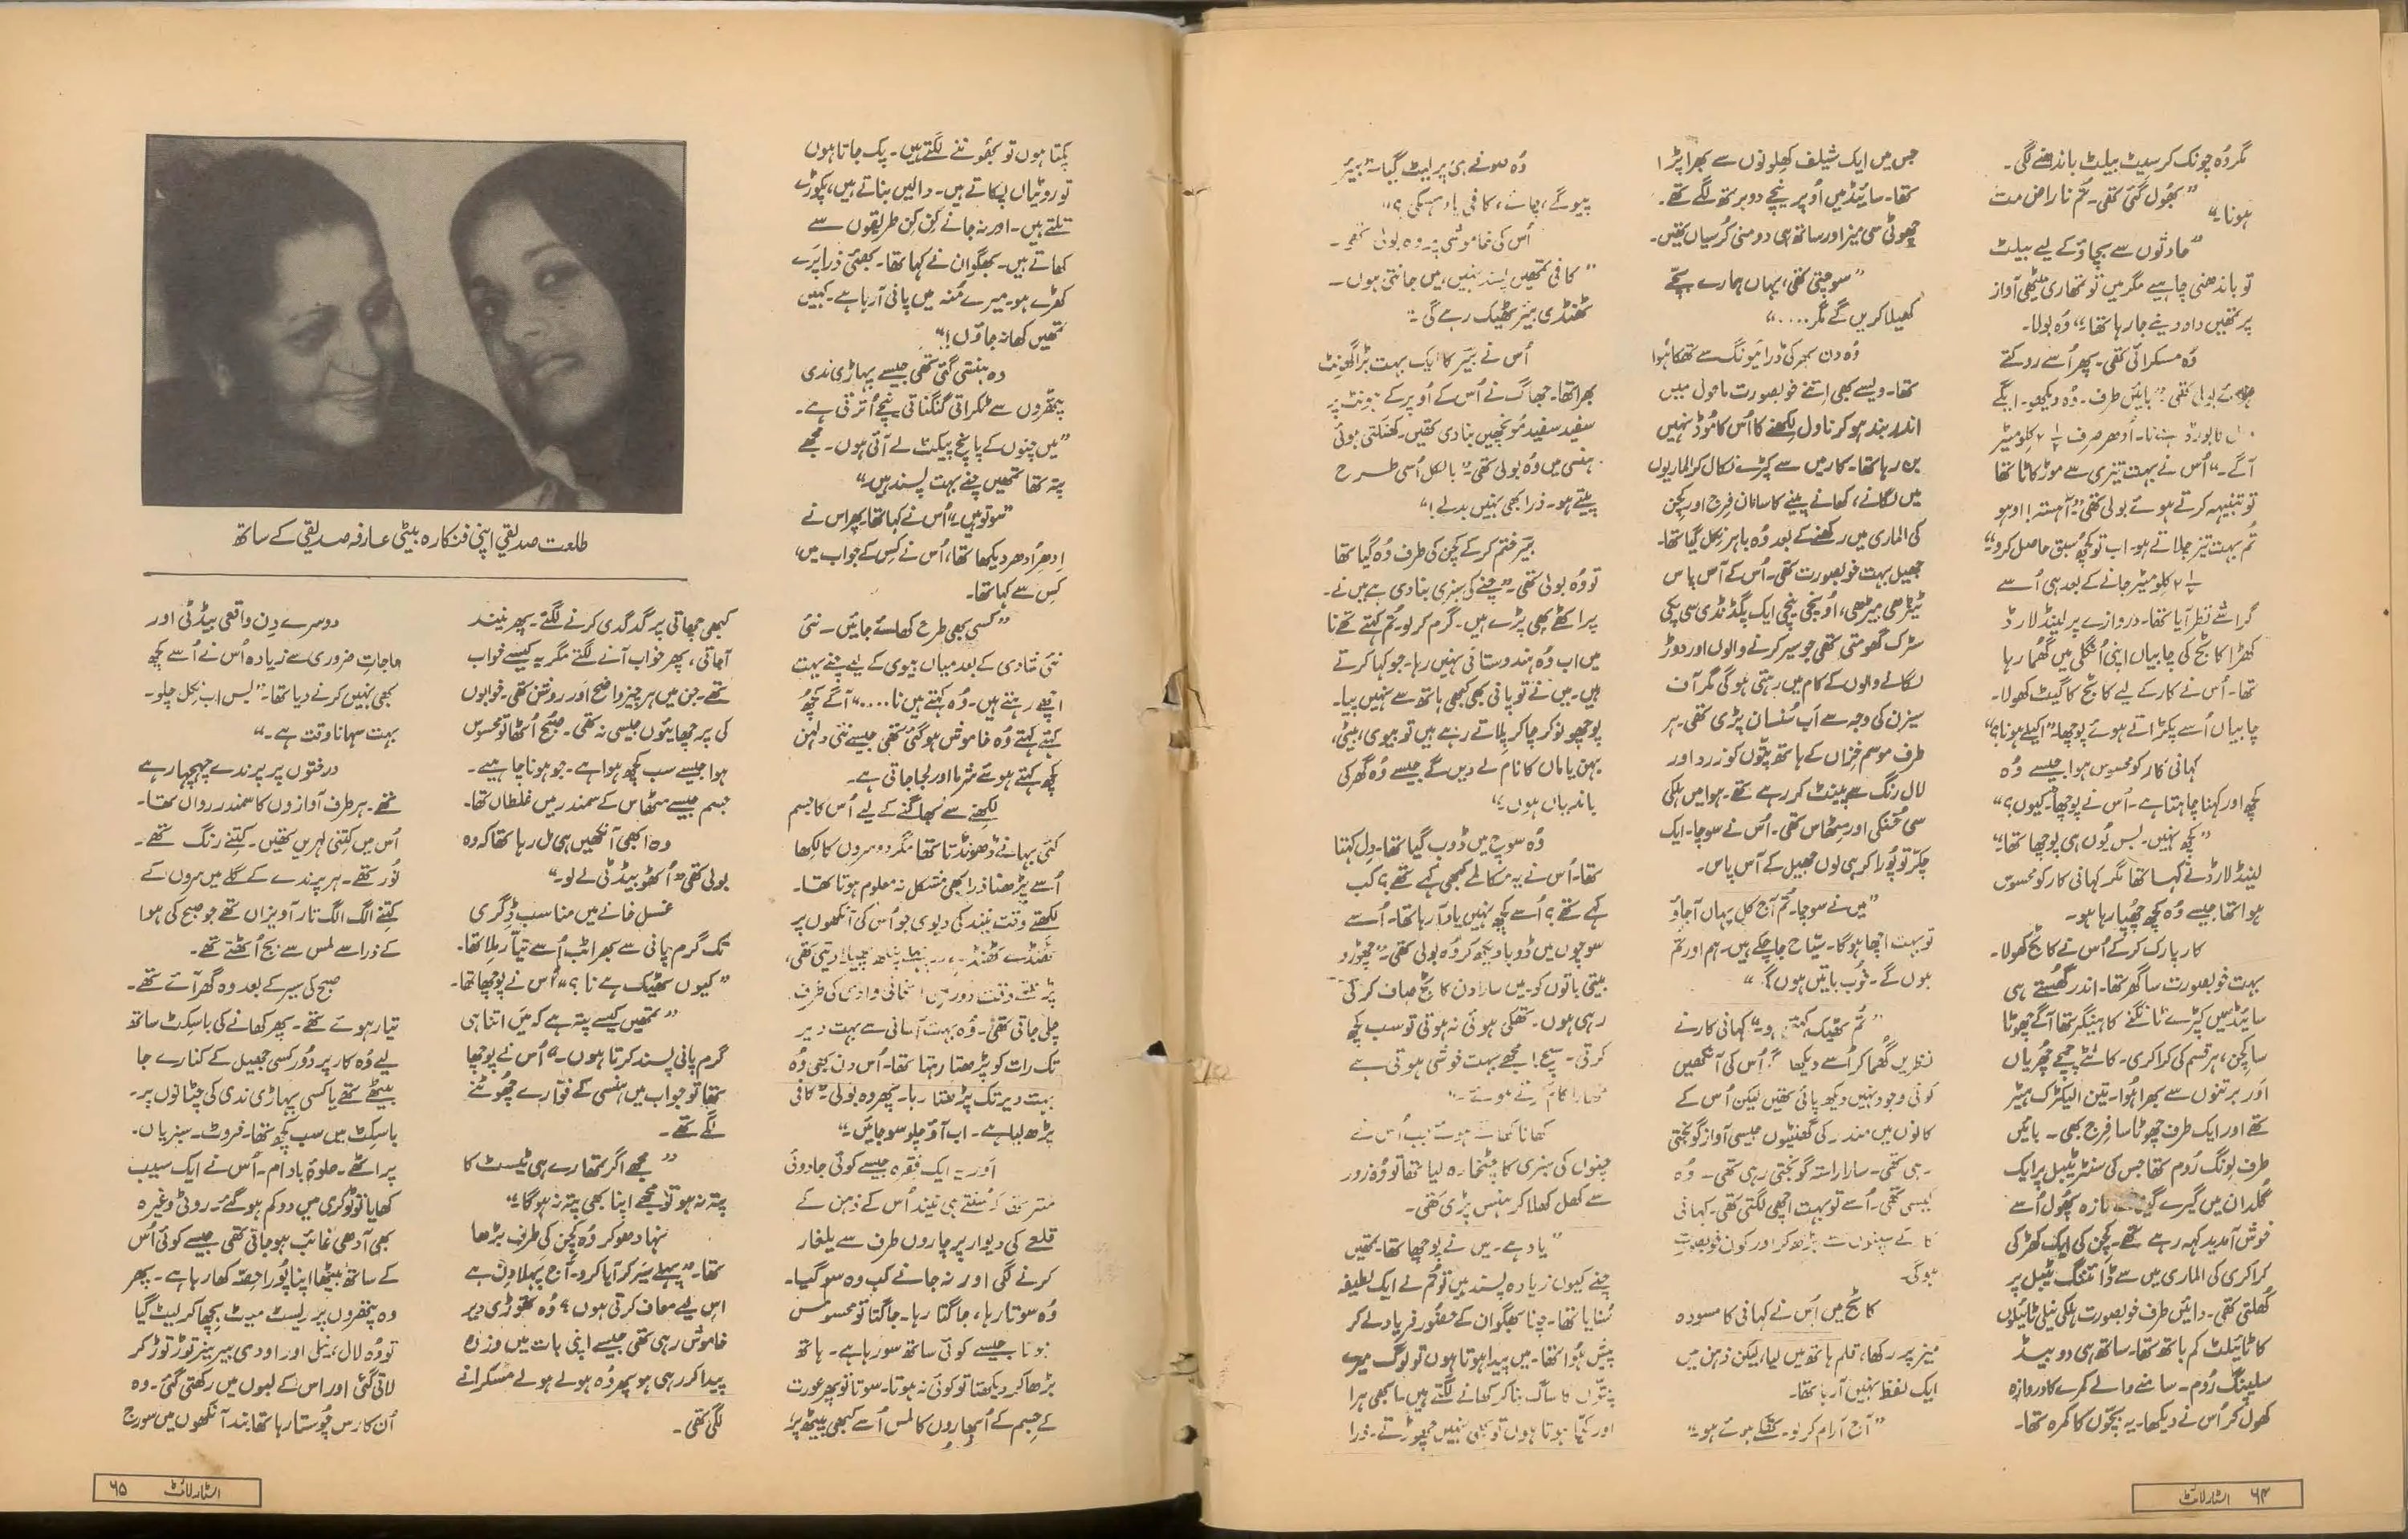 مگر وُہ چونک کر سیٹ بیلٹ باندھنے لگی۔
”بھُول گئی تھی۔ تُم ناراض مت
ہونا۔“
”حادثوں سے بچاؤ کے لیے بیلٹ
تو باندھنی چاہیے مگر میں تو تمھاری میٹھی آواز
پر تمھیں داد دینے جا رہا تھا۔“ وُہ بولا۔
وُہ مسکرائی تھی۔ پھر اُسے روکتے
ہوئے بولی تھی: ”بائیں طرف۔ وُہ دیکھو۔ ایگے
بورڈ ہے نا۔ اُدھر صرف ۲ ½ کلومیٹر
آگے۔“ اُس نے بہت تیزی سے موڑ کاٹا تھا
تو تنبیہہ کرتے ہوئے بولی تھی ”آہستہ! اوہو
تُم بہت تیز چلاتے ہو۔ اب تو کچھ سبق حاصل کرو۔“
۲ ½ کلومیٹر جانے کے بعد ہی اُسے
گراشے نظر آیا تھا۔ دروازے پر لینڈ لارڈ
کھڑا کاٹج کی چابیاں اپنی اُنگلی میں گھُما رہا
تھا۔ اُس نے کار کے لیے کاٹج کا گیٹ کھولا۔
چابیاں اُسے پکڑاتے ہوئے پوچھا۔ ”اکیلے ہو نا؟“
کہانی کار کو محسوس ہوا جیسے وُہ
کچھ اور کہنا چاہتا ہے۔ اُس نے پوچھا۔ ”کیوں؟“
”کچھ نہیں۔ بس یُوں ہی پوچھا تھا۔“
لینڈ لارڈ نے کہا تھا مگر کہانی کار کو محسوس
ہوا تھا جیسے وُہ کچھ چھُپا رہا ہو۔
کار پارک کر کے اُس نے کاٹج کھولا۔
بہت خوبصورت سا گھر تھا۔ اندر گھُستے ہی
سائیڈ میں کپڑے ٹانگنے کا ہینگر تھا آگے چھوٹا
سا کچن، ہر قسم کی کراکری۔ کانٹے چمچے چھُریاں
اور برتنوں سے بھرا ہُوا۔ تین الیکٹرک ہیٹر
تھے اور ایک طرف چھوٹا سا فرج بھی۔ بائیں
طرف لِونگ رُوم تھا جس کی سنٹر ٹیبل پر ایک
گُلدان میں گیرے تازہ پھُول اُسے
خوش آمدید کہہ رہے تھے۔ کچن کی ایک کھڑکی
کراکری کی الماری میں سے ڈائننگ ٹیبل پر
کھُلتی تھی۔ دائیں طرف خوبصورت ہلکی نیلی ٹائیلوں
کا ٹائیلٹ کم باتھ تھا۔ ساتھ ہی دو بیڈ
سلیپنگ رُوم۔ سامنے والے کمرے کا دروازہ
کھول کر اُس نے دیکھا۔ یہ بچّوں کا کمرہ تھا۔
جس میں ایک شیلف کھِلونوں سے بھرا پڑا
تھا۔ سائیڈ میں اُوپر نیچے دو برتھ لگے تھے۔
چھوٹی سی میز اور ساتھ ہی دو منی کُرسیاں تھیں۔
”سوچتی تھی، یہاں ہمارے بچّے
کھیلا کریں گے مگر....“
وُہ دن بھر کی ڈرائیونگ سے تھکا ہُوا
تھا۔ ویسے بھی اِتنے خوبصورت ماحول میں
اندر بند ہو کر ناول لِکھنے کا اُس کا مُوڈ نہیں
بن رہا تھا۔ کار میں سے کپڑے نکال کر الماریوں
میں لگانے، کھانے پینے کا سامان فرج اور کچن
کی الماری میں رکھنے کے بعد وُہ باہر نکل گیا تھا۔
جھیل بہت خوبصورت تھی۔ اُس کے آس پاس
ٹیڑھی میڑھی، اُونچی نیچی ایک پگڈنڈی سی پکّی
سڑک گھومتی تھی جو سیر کرنے والوں اور دوڑ
لگانے والوں کے کام میں رہتی ہو گی مگر آف
سیزن کی وجہ سے اَب سُنسان پڑی تھی۔ ہر
طرف موسم خزاں کے ہاتھ پتّوں کو زرد اور
لال رنگ سے پینٹ کر رہے تھے۔ ہوا میں ہلکی
سی خُنکی اور مِٹھاس تھی۔ اُس نے سوچا۔ ایک
چکّر تو پُورا کر ہی لوں جھیل کے آس پاس۔
”میں نے سوچا۔ تُم آج کل یہاں آ جاؤ
تو بہت اچھا ہو گا۔ سیّاح جا چکے ہیں۔ ہم اور تُم
ہوں گے۔ خُوب باتیں ہوں گی۔“
”تُم ٹھیک کہتی ہو۔“ کہانی کار نے
نظریں گھُما کر اُسے دیکھا۔ اُس کی آنکھیں
کوئی وجود نہیں دیکھ پائی تھیں لیکن اُس کے
کانوں میں مندر کی گھنٹیوں جیسی آواز گونجتی
رہی تھی۔ سارا راستہ گونجتی رہی تھی۔ وُہ
کیسی تھی۔ اُسے تو بہت اچھی لگتی تھی۔ کہانی
کار کے سپنوں سے بڑھ کر اور کون خوبصورت
ہو گی۔
کاٹج میں اُس نے کہانی کا مسودہ
میز پر رکھا، قلم ہاتھ میں لیا، لیکن ذہن میں
ایک لفظ نہیں آ رہا تھا۔
”آج آرام کر لو۔ تھکے ہوئے ہو۔“
وُہ صوفے ہی پر لیٹ گیا۔ ”بیئر
پیو گے، چائے، کافی یا وہسکی؟“
اُس کی خاموشی پہ وہ بولی تھی۔
”کافی تمھیں پسند نہیں، میں جانتی ہوں۔
ٹھنڈی بیئر ٹھیک رہے گی۔“
اُس نے بیئر کا ایک بہت بڑا گھونٹ
بھرا تھا۔ جھاگ نے اُس کے اُوپر کے ہونٹ پر
سفید سفید مُونچھیں بنا دی تھیں۔ کھنکتی ہوئی
ہنسی میں وُہ بولی تھی۔ ”بالکل اُسی طرح
پیتے ہو۔ ذرا بھی نہیں بدلے!“
بیئر ختم کر کے کچن کی طرف وُہ گیا تھا
تو وُہ بولی تھی۔ ”چنے کی سبزی بنا دی ہے میں نے۔
پراٹھے بھی پڑے ہیں۔ گرم کر لو۔ تُم کہتے تھے نا
میں اب وُہ ہندوستانی نہیں رہا۔ جو کہا کرتے
ہیں۔ میں نے تو پانی بھی کبھی ہاتھ سے نہیں پیا۔
پوچھو نوکر چاکر پلاتے رہے ہیں تو بیوی، بیٹی،
بہن یا ماں کا نام لے دیں گے جیسے وُہ گھر کی
باندیاں ہوں۔“
وُہ سوچ میں ڈوب گیا تھا۔ دِل کہتا
تھا۔ اُس نے یہ مکالمے کبھی کہے تھے؟ کب
کہے تھے؟ اُسے کچھ نہیں یاد آ رہا تھا۔ اُسے
سوچوں میں ڈوبا دیکھ کر وُہ بولی تھی۔ ”چھوڑو
بیتی باتوں کو۔ میں سارا دن کاٹج صاف کرتی
رہی ہوں۔ تھکی ہوئی نہ ہوتی تو سب کچھ
کرتی۔ سچ! مجھے بہت خوشی ہوتی ہے
تمھارا کام کرتے ہوئے۔“
کھانا کھاتے ہوئے جب اُس نے
چنوں کی سبزی کا چٹخارہ لیا تھا تو وُہ زور
سے کھِل کھِلا کر ہنس پڑی تھی۔
”یاد ہے۔ میں نے پوچھا تھا۔ تمھیں
چنے کیوں زیادہ پسند ہیں تو تُم نے ایک لطیفہ
سُنایا تھا۔ چنا بھگوان کے حضُور فریاد لے کر
پیش ہُوا تھا۔ میں پیدا ہوتا ہوں تو لوگ میرے
پتّوں کا ساگ بنا کر کھانے لگتے ہیں۔ ابھی ہرا
اور کچّا ہوتا ہوں تو بھی نہیں چھوڑتے۔ ذرا
۶۴ اسٹار لائٹ
پکتا ہوں تو بھُوننے لگتے ہیں۔ پک جاتا ہوں
تو روٹیاں پکاتے ہیں۔ دالیں بناتے ہیں، پکوڑے
تلتے ہیں۔ اور نہ جانے کِن کِن طریقوں سے
کھاتے ہیں۔ بھگوان نے کہا تھا۔ بھئی ذرا پرے
کھڑے ہو۔ میرے مُنہ میں پانی آ رہا ہے۔ کہیں
تُمھیں کھا نہ جاؤں!“
وہ ہنستی گئی تھی جیسے پہاڑی ندی
پتھّروں سے ٹکراتی گُنگُناتی نیچے اُترتی ہے۔
”میں چنوں کے پانچ پیکٹ لے آئی ہوں۔ مجھے
پتہ تھا تمھیں چنے بہت پسند ہیں۔“
”سو تو ہیں۔“ اُس نے کہا تھا۔ پھر اس نے
اِدھر اُدھر دیکھا تھا، اُس نے کِس کے جواب میں،
کِس سے کہا تھا۔
”کسی بھی طرح کھائے جائیں۔ نئی
نئی شادی کے بعد میاں بیوی کے لیے چنے بہت
اچھے رہتے ہیں۔ وُہ کہتے ہیں نا....“ آگے کچھُ
کہتے کہتے وُہ خاموش ہو گئی تھی جیسے نئی دلہن
کچھ کہتے ہوئے شرما اور لجا جاتی ہے۔
لکھنے سے بھاگنے کے لیے اُس کا جسم
کئی بہانے ڈھونڈتا تھا مگر دوسروں کا لکھا
اُسے پڑھنا ذرا بھی مشکل نہ معلوم ہوتا تھا۔
لکھتے وقت نیند کی دیوی جو اُس کی آنکھوں پر
ٹھنڈے ٹھنڈے پنکھ پھیلا دیتی تھی،
پڑھتے وقت دور آسمانی وادی کی طرف
چلی جاتی تھی۔ وُہ بہت آسانی سے بہت دیر
تک رات کو پڑھتا رہتا تھا۔ اُس دن بھی وُہ
بہت دیر تک پڑھتا رہا۔ پھر وہ بولی ”کافی
پڑھ لیا ہے۔ اب آؤ چلو سو جائیں۔“
اور یہ ایک فقرہ جیسے کوئی جادوئی
منتر تھا کہ سُنتے ہی نیند اُس کے ذہن کے
قلعے کی دیوار پر چاروں طرف سے یلغار
کرنے لگی اور نہ جانے کب وہ سو گیا۔
وُہ سوتا رہا، جاگتا رہا۔ جاگتا تو محسوس
ہوتا جیسے کوئی ساتھ سو رہا ہے۔ ہاتھ
بڑھا کر دیکھتا تو کوئی نہ ہوتا۔ سوتا تو پھر عورت
کے جسم کے اُبھاروں کا لمس اُسے کبھی پیٹھ پر،
طلعت صدیقی اپنی فنکارہ بیٹی عارفہ صدیقی کے ساتھ
کبھی چھاتی پر گدگدی کرنے لگتے۔ پھر نیند
آ جاتی، پھر خواب آنے لگتے مگر یہ کیسے خواب
تھے۔ جن میں ہر چیز واضح اور روشن تھی۔ خوابوں
کی پرچھائیوں جیسی نہ تھی۔ صُبح اُٹھا تو محسوس
ہوا جیسے سب کچھ ہوا ہے۔ جو ہونا چاہیے۔
جسم جیسے مٹھاس کے سمندر میں غلطاں تھا۔
وہ ابھی آنکھیں ہی مل رہا تھا کہ وہ
بولی تھی ”اُٹھو بیڈ ٹی لے لو۔“
غسل خانے میں مناسب ڈگری
تک گرم پانی سے بھرا ٹب اُسے تیّار ملا تھا۔
”کیوں ٹھیک ہے نا؟“ اُس نے پوچھا تھا۔
”تمھیں کیسے پتہ ہے کہ میں اتنا ہی
گرم پانی پسند کرتا ہوں۔“ اُس نے پوچھا
تھا تو جواب میں ہنسی کے فوّارے چھُوٹنے
لگے تھے۔
”مجھے اگر تمھارے ہی ٹیسٹ کا
پتہ نہ ہو تو مجھے اپنا بھی پتہ نہ ہو گا۔“
نہا دھو کر وُہ کچن کی طرف بڑھا
تھا۔ ”پہلے سیر کر آیا کرو۔ آج پہلا دِن ہے
اِس لیے معاف کرتی ہوں؟ وُہ تھوڑی دیر
خاموش رہی تھی جیسے اپنی بات میں وزن
پیدا کر رہی ہو پھر وُہ ہولے ہولے مسکرانے
لگی تھی۔
دوسرے دِن واقعی بیڈ ٹی اور
حاجاتِ ضروری سے زیادہ اُس نے اُسے کچھ
بھی نہیں کرنے دیا تھا۔ ”بس اب نکل چلو۔
بہت سہانا وقت ہے۔“
درختوں پر پرندے چہچہا رہے
تھے۔ ہر طرف آوازوں کا سمندر رواں تھا۔
اُس میں کِتنی لہریں تھیں۔ کِتنے رنگ تھے۔
نُور تھے۔ ہر پرندے کے گلے میں سروں کے
کِتنے الگ الگ تار آویزاں تھے جو صبح کی ہوا
کے ذرا سے لمس سے بج اُٹھتے تھے۔
صبح کی سیر کے بعد وہ گھر آئے تھے۔
تیار ہوئے تھے۔ پھر کھانے کی باسکِٹ ساتھ
لیے وُہ کار پر دُور کسی جھیل کے کنارے جا
بیٹھے تھے یا کسی پہاڑی ندی کی چٹانوں پر۔
باسکِٹ میں سب کچھ تھا۔ فروٹ۔ سبزیاں۔
پراٹھے۔ حلوۂ بادام۔ اُس نے ایک سیب
کھایا تو ٹوکری میں دو کم ہو گئے۔ روٹی وغیرہ
بھی آدھی غائب ہو جاتی تھی جیسے کوئی اُس
کے ساتھ بیٹھا اپنا پُورا حِصّہ کھا رہا ہے۔ پھر
وہ پتھروں پر ریسٹ میٹ بِچھا کر لیٹ گیا
تو وُہ لال، نیلی اور اودی بیریز توڑ توڑ کر
لاتی گئی اور اس کے لبوں میں رکھتی گئی۔ وہ
اُن کا رس چُوستا رہا تھا بند آنکھوں میں سورج
اسٹار لائٹ ۶۵